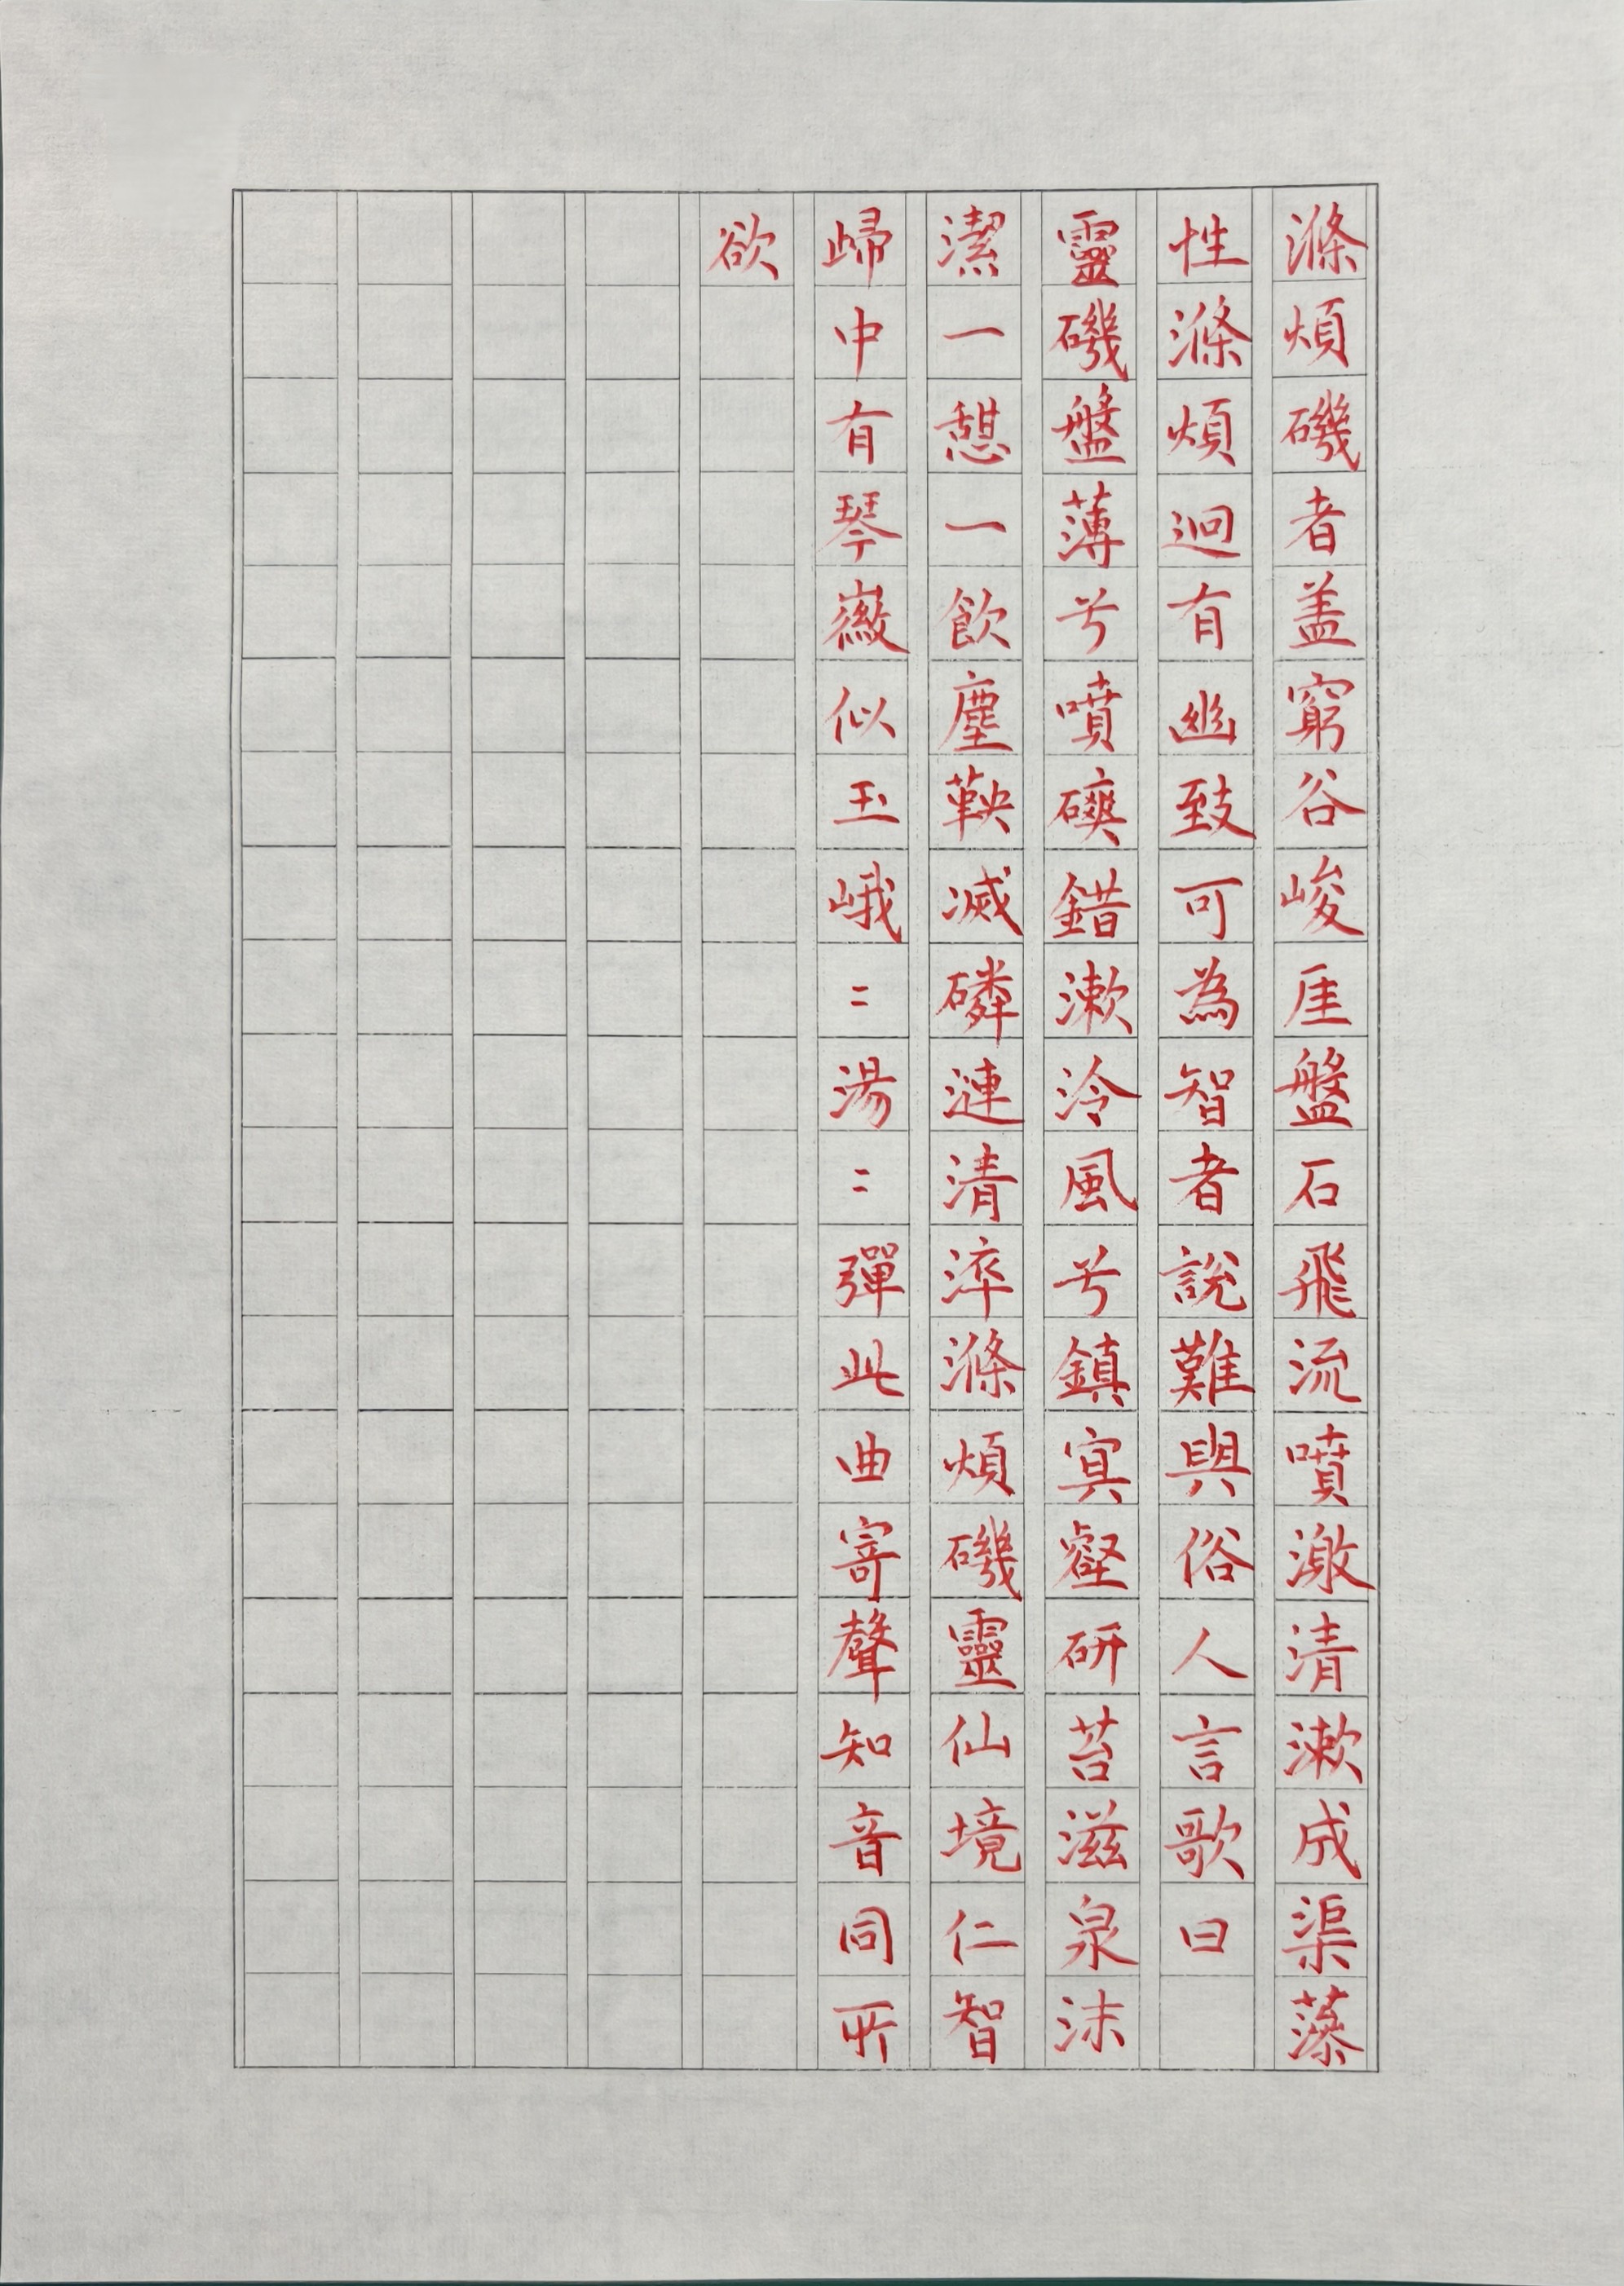 滌煩磯者盖窮谷峻厓盤石飛流噴激清漱成渠藻
性滌煩迴有幽致可為智者說難與俗人言歌曰
靈磯盤薄兮噴磢錯漱泠風兮鎮寘壑研苔滋泉沫
潔一憩一飲塵鞅滅磷漣清淬滌煩磯靈仙境仁智
歸中有琴徽似玉峨〻湯〻彈此曲寄聲知音同所
欲